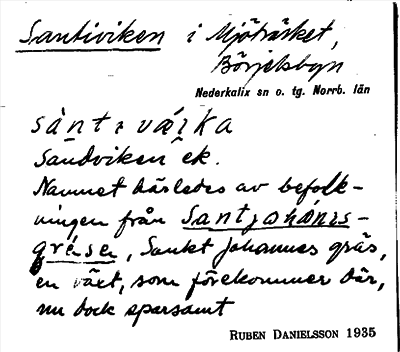 Santiviken i Mjöträsket,
Börjelsbyn
Nederkalix sn o. tg. Norrb. län
sàntivárka
Sandviken ek.
Namnet härledes av befolk-
ningen från Santjohánrs-
gréser, Sankt Johannes gräs,
en växt, som förekommer där,
nu dock sparsamt
RUBEN DANIELSSON 1935